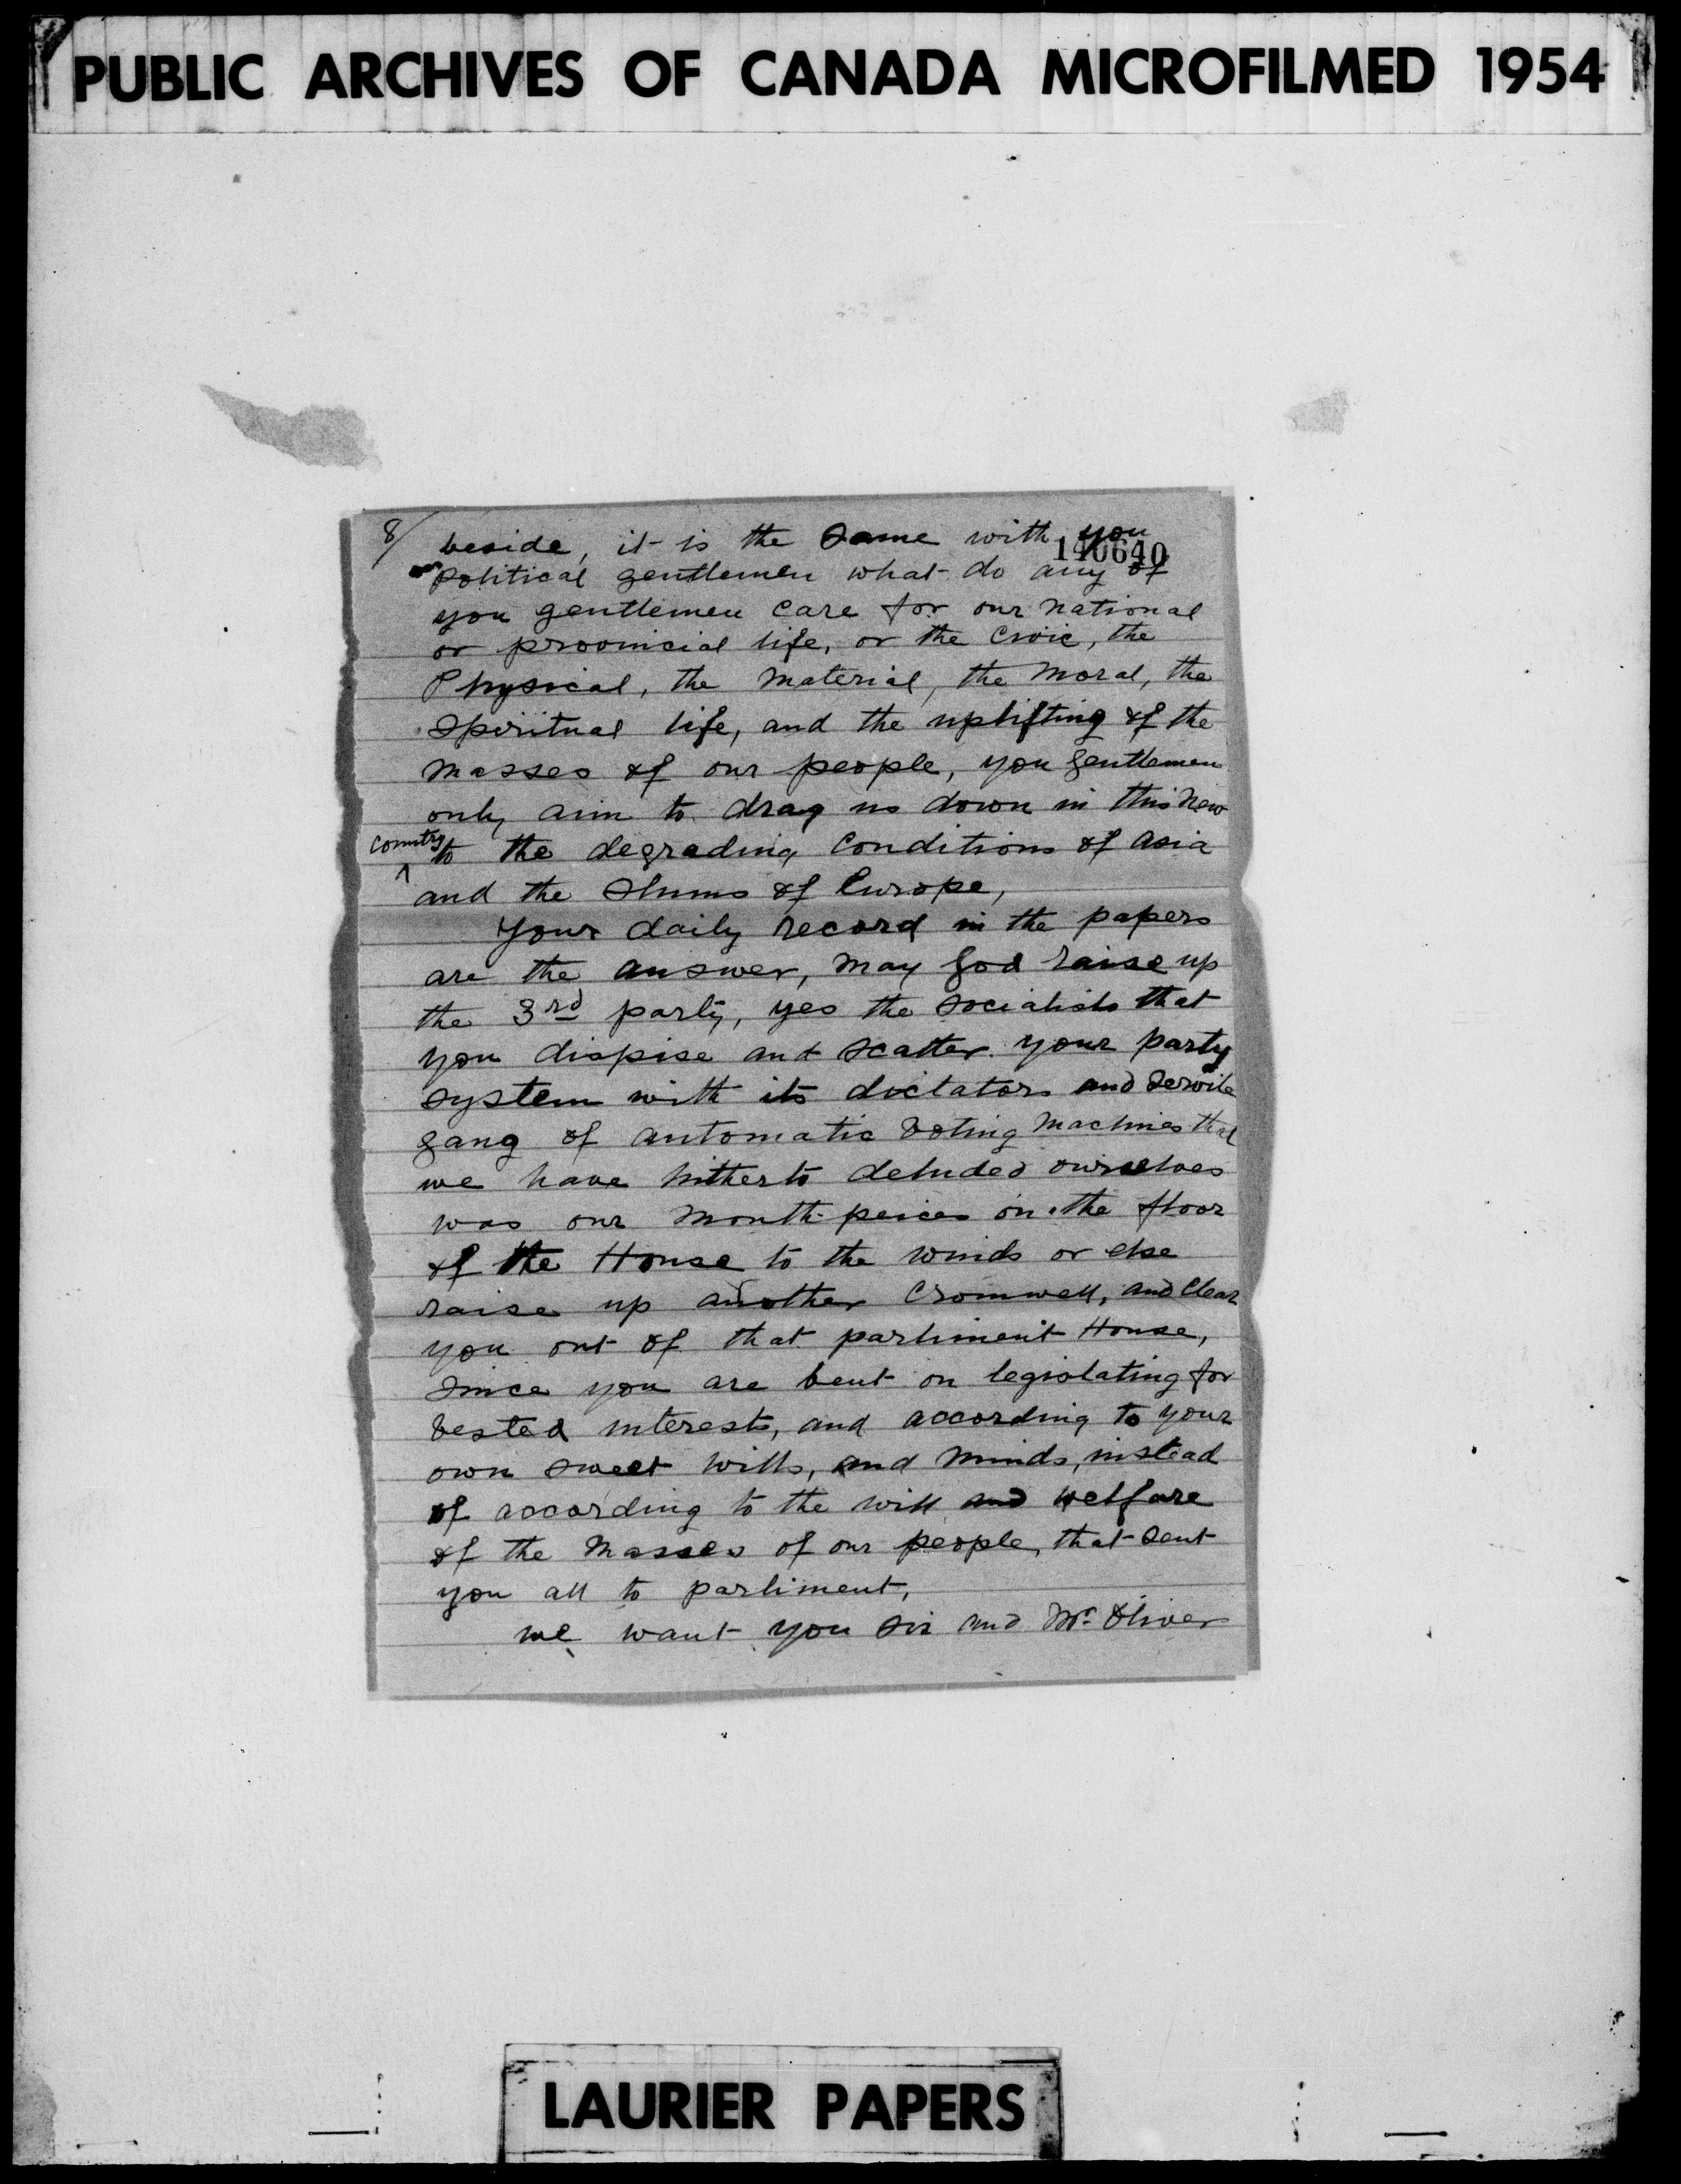 PUBLIC ARCHIVES OF CANADA MICROFILMED 1954
8/ beside, it is the same with you
140640
political gentlemen what do any of
you gentlemen care for our national
or provincial life, or the civic, the
Physical, the material, the moral, the
spiritual life, and the uplifting of the
masses of our people, you gentlemen
only aim to drag us down in this new
country to the degrading conditions of asia
and the slums of Europe,
Your daily record in the papers
are the answer, may god raise up
the 3rd party, yes the socialists that
you dispise and scatter your party
system with its dictators and servile
gang of automatic voting machines that
we have hitherto deluded ourselves
was our mouth peices on the floor
of the House to the winds or else
raise up another Cromwell, and clear
you out of that parliment House,
since you are bent on legislating for
vested interests, and according to your
own sweet wills, and minds, instead
of according to the will and welfare
of the masses of our people, that sent
you all to parliment,
we want you sir and Mr. Oliver
LAURIER PAPERS